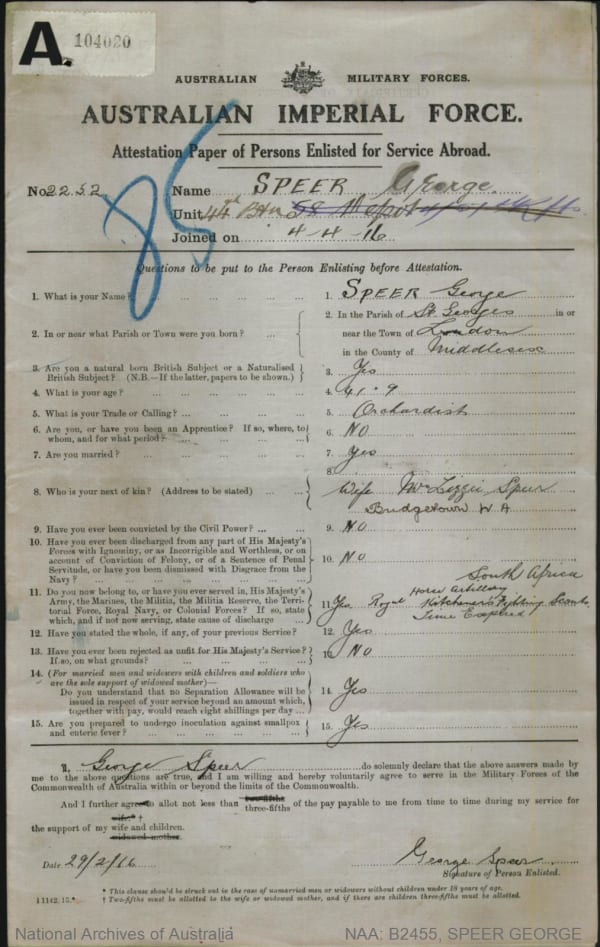 A. 104020
AUSTRALIAN MILITARY FORCES.
AUSTRALIAN IMPERIAL FORCE.
Attestation Paper of Persons Enlisted for Service Abroad.
85
No. 2252 Name SPEER George
Unit 44th Btn 58 Depot
Joined on 4-4-16
Questions to be put to the Person Enlisting before Attestation.
1. What is your Name? ... ... ... ... 1. SPEER George
2. In or near what Parish or Town were you born? ... 2. In the Parish of St. Georges in or
near the Town of London
in the County of Middlesex
3. Are you a natural born British Subject or a Naturalised
British Subject? (N.B.—If the latter, papers to be shown.) 3. Yes
4. What is your age? ... ... ... ... 4. 41.9
5. What is your Trade or Calling? ... ... ... ... 5. Orchardist
6. Are you, or have you been an Apprentice? If so, where, to
whom, and for what period? ... ... ... 6. NO
7. Are you married? ... ... ... ... 7. Yes
8. Who is your next of kin? (Address to be stated) ... ... 8. Wife Mrs Lizzie Speer
Bridgetown W.A
9. Have you ever been convicted by the Civil Power? ... ... 9. NO
10. Have you ever been discharged from any part of His Majesty's
Forces with Ignominy, or as Incorrigible and Worthless, or on
account of Conviction of Felony, or of a Sentence of Penal
Servitude, or have you been Dismissed with Disgrace from the
Navy? ... ... ... ... 10. NO
11. Do you now belong to, or have you ever served in, His Majesty's
Army, the Marines, the Militia, the Militia Reserve, the Terri-
torial Force, Royal Navy, or Colonial Forces? If so, state
which, and if not now serving, state cause of discharge ... 11. Yes Royal Horse Artillery South Africa
Kitchener's Fighting Scouts
Time Expired
12. Have you stated the whole, if any, of your previous Service? 12. Yes
13. Have you ever been rejected as unfit for His Majesty's Service?
If so, on what grounds? ... ... ... 13. NO
14. (For married men and widowers with children and soldiers who
are the sole support of widowed mother)—
Do you understand that no Separation Allowance will be
issued in respect of your service beyond an amount which,
together with pay, would reach eight shillings per day ... 14. Yes
15. Are you prepared to undergo inoculation against smallpox
and enteric fever? ... ... ... ... 15. Yes
I, George Speer do solemnly declare that the above answers made by
me to the above questions are true, and I am willing and hereby voluntarily agree to serve in the Military Forces of the
Commonwealth of Australia within or beyond the limits of the Commonwealth.
And I further agree to allot not less than two-fifths three-fifths of the pay payable to me from time to time during my service for
wife* †
the support of my wife and children.
widowed mother.
Date 29/2/16 George Speer
Signature of Person Enlisted.
* This clause should be struck out in the case of unmarried men or widowers without children under 18 years of age.
† Two-fifths must be allotted to the wife or widowed mother, and if there are children three-fifths must be allotted.
11142.15.*
National Archives of Australia NAA: B2455, SPEER GEORGE